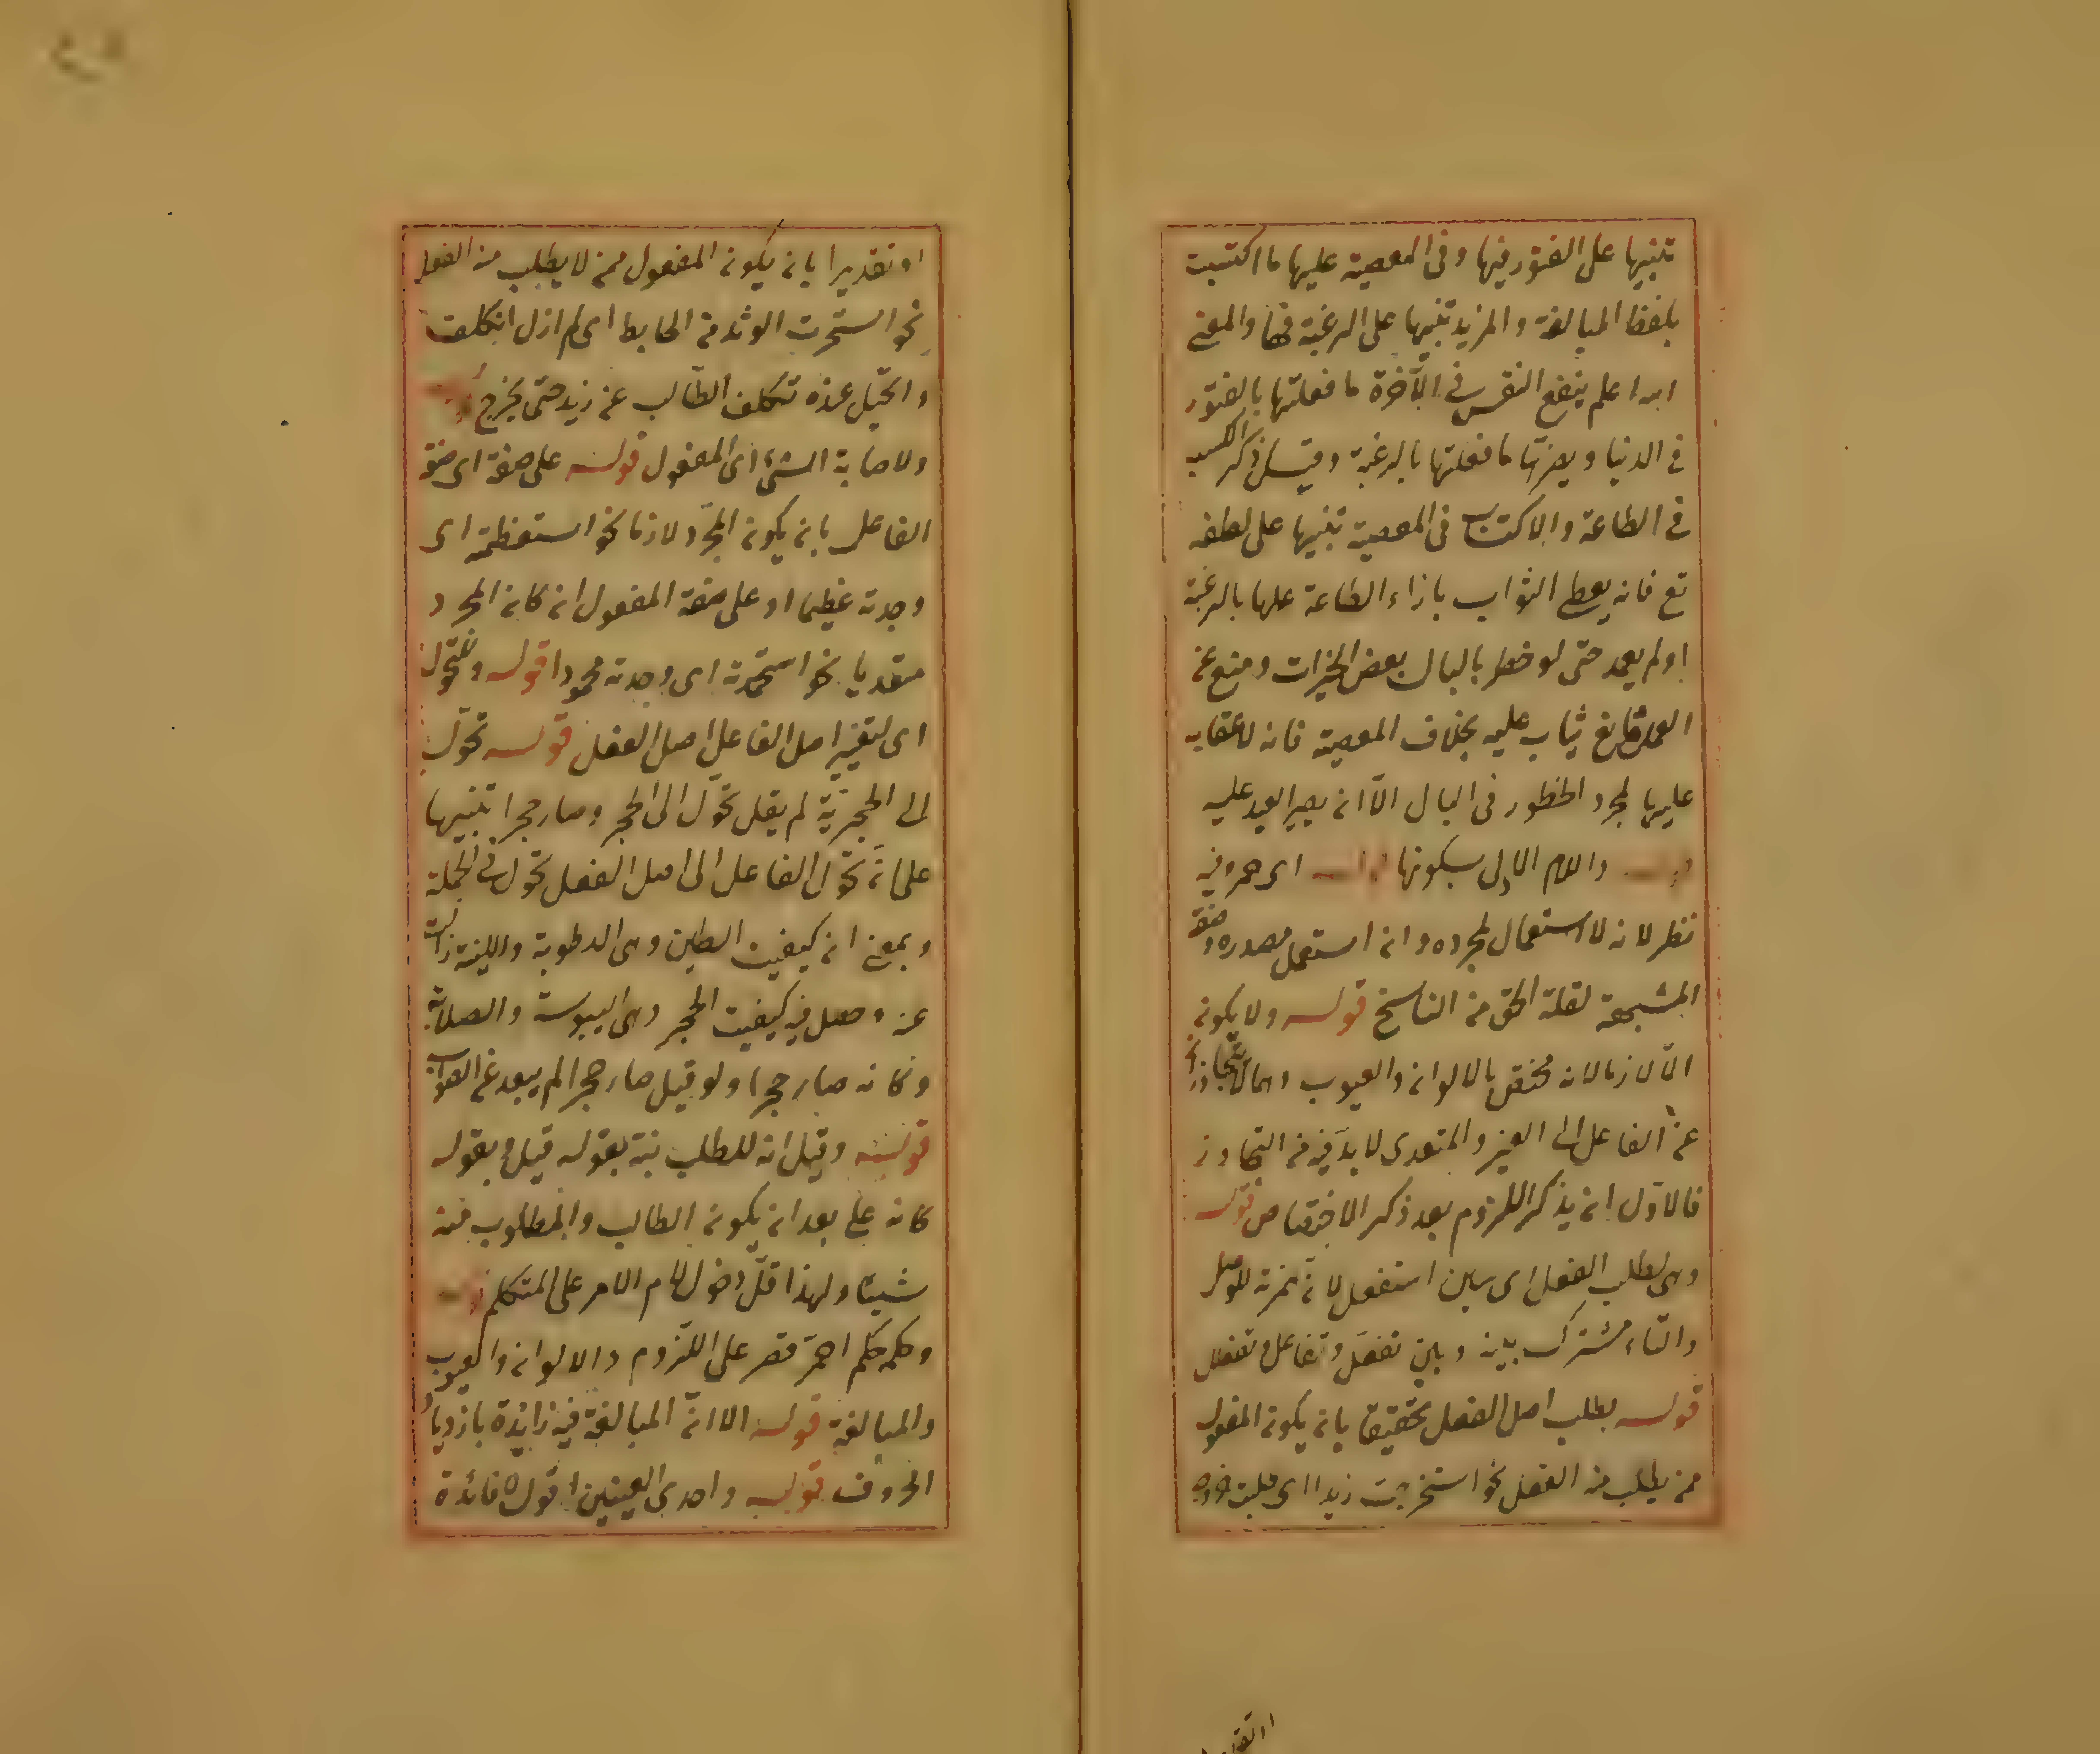 تنبيها على الفتور فيها وفى المعصية عليها ما اكتسبت
بلفظ المبالغة والمزيد تنبيها على الرغبة فيها والمعنى
اعلم ينفع النفس فى الآخرة ما فعلتها بالفتور
فى الدنيا ويضرّها ما فعلتها بالرغبة وقيل ذكر الكسب
فى الطاعة والاكتساب فى المعصية تنبيها على لطفه
تع فانه يعطى الثواب بازاء الطاعة عملها بالرغبة
اولم يعمد حتى لو خطر بالبال بعض الخيرات ومنع عن
العمل مانع يثاب عليه بخلاف المعصية فانه لا عقاب
عليها لمجرد الخطور فى البال الّا انه يصير العبد عليه
واللام الاولى بسكونها اى حمر وفيه
نظر لانه لا استعمال لمجرده وانه استعمل مصدره وصفة
المشبهة لقلة الحق من الناسخ قوله ولا يكون
الّا لازما لانه مختص بالالوان والعيوب وهما لا يتجاوزان
عن الفاعل الى الغير والمتعدى لا بدّ فيه من التجاوز
فالاولى ان يذكر اللزوم بعد ذكر الاختصاص قوله
وهى لطلب الفعل اى سين استفعل لانّ همزته للوصل
والتاء مشترك بينه وبين تفعّل وتفاعل وتفعلل
قوله بطلب اصل الفعل تحقيقا بانه يكون المفعول
ممن يطلب منه الفعل نحو استخرجت زيدا اى طلبت خروجه
او تقديرا بانه يكون المفعول ممن لا يطلب منه الفعل
نحو استخرجت الوتد من الحايط اى لم ازل اتكلف
واتخيّل عنده تكلف الطالب عن زيد حتى يخرج
ولاصابة الشئ اى المفعول قوله على صفة اى صفة
الفاعل بانه يكون المجرّد لازما نحو استعظمته اى
وجدته عظيما او على صفة المفعول ان كان المجرد
متعديا نحو استحمدته اى وجدته محمودا قوله وللتحوّل
اى لتغيير اصل الفاعل اصل الفعل قوله تحوّل
الى الحجريّة لم يقل تحوّل الى الحجر وصار حجرا تنبيها
على انّ تحوّل الفاعل الى اصل الفعل تحوّل فى الجملة
وبمعنى ان كيفيت الطين وهى الرطوبة واللينة زالت
عنه وحصل فيه كيفيت الحجر وهى اليبوسة والصلابة
وكانه صار حجرا ولو قيل صار حجرا لم يبعد عن الصواب
قوله وقيل انه للطلب نبّه بقوله قيل وبقوله
كانه على بعد ان يكون الطالب والمطلوب منه
شيئا ولهذا قلّ دخول لام الامر على المتكلم
وحكمه حكم احمرّ قصر على اللزوم والالوان والعيوب
والمبالغة قوله الا انّ المبالغة فيه زائدة بازدياد
الحروف قوله واحدى العينين اقول فائدة